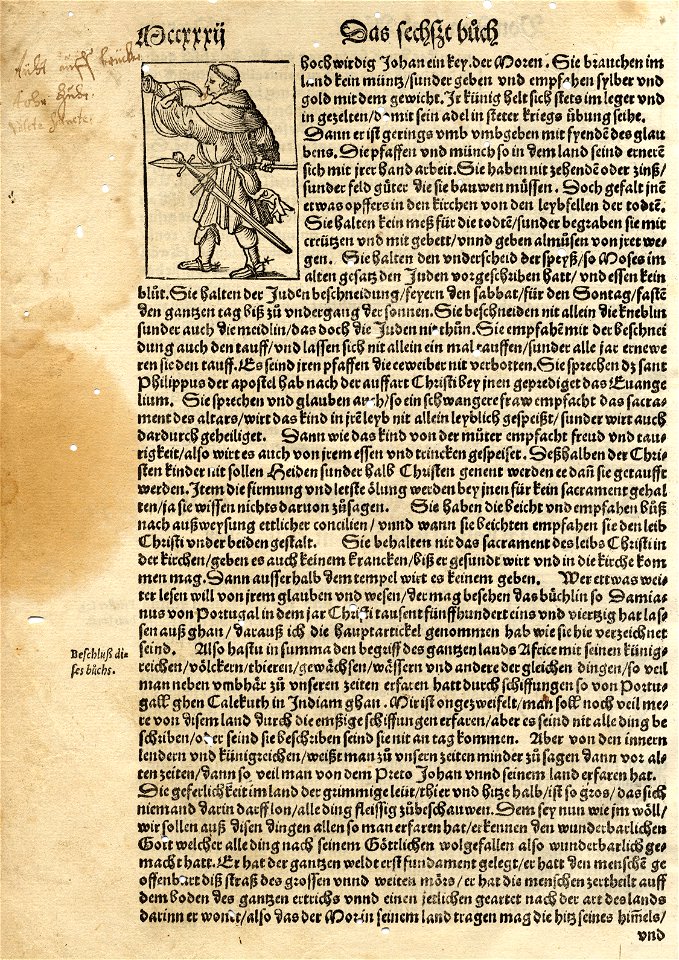 Mccxxxij Das sechszt bůch
hochwirdig Johan ein key. der Moren. Sie brauchen im
land kein müntz/ sunder geben vnd empfahen sylber vnd
gold mit dem gewicht. Jr künig helt sich stets im leger vnd
in gezelten/ do mit sein adel in steter kriegs übung seihe.
Dann er ist gerings vmb vmbgeben mit fyenden des glau
bens. Die pfaffen vnd münch so in dem land seind ernerē
sich mit jrer hand arbeit. Sie haben nit zehenden oder zinß/
sunder feld güter die sie bauwen müssen. Doch gefalt jnē
etwas opffers in den kirchen von den leybfellen der todtē.
Sie halten kein meß für die todtē/ sunder begraben sie mit
creützen vnd mit gebett/ vnnd geben almůsen von jret we
gen. Sie halten den vnderscheid der speyß/ so Moses im
alten gesatz den Juden vorgeschriben hatt/ vnd essen kein
blůt. Sie halten der Juden beschneidung/ feyern den sabbat/ für den Sontag/ fastē
den gantzen tag biß zů vndergang der sonnen. Sie beschneiden nit allein die kneblin
sunder auch die meidlin/ das doch die Juden nit thůn. Sie empfahē mit der beschnei
dung auch den tauff/ vnd lassen sich nit allein ein mal tauffen/ sunder alle jar ernewe
ren sie den tauff. Es seind jren pfaffen die eeweiber nit verbotten. Sie sprechen dz sant
Philippus der apostel hab nach der auffart Christi bey jnen geprediget das Euange
lium. Sie sprechen vnd glauben auch/ so ein schwangere fraw empfacht das sacra
ment des altars/ wirt das kind in jrē leyb nit allein leyblich gespeißt/ sunder wirt auch
dardurch geheiliget. Dann wie das kind von der můter empfacht freud vnd tau
rigkeit/ also wirt es auch von jrem essen vnd trincken gespeiset. Deßhalben der Chri
sten kinder nit sollen Heiden sunder halb Christen genent werden ee dañ sie getaufft
werden. Item die firmung vnd letste ölung werden bey jnen für kein sacrament gehal
ten/ ja sie wissen nichts daruon zůsagen. Sie haben die beicht vnd empfahen bůß
nach außweysung ettlicher concilien/ vnnd wann sie beichten empfahen sie den leib
Christi vnder beiden gestalt. Sie behalten nit das sacrament des leibs Christi in
der kirchen/ geben es auch keinem krancken/ biß er gesundt wirt vnd in die kirche kom
men mag. Dann ausserhalb dem tempel wirt es keinem geben. Wer ettwas wei
ter lesen will von jrem glauben vnd wesen/ der mag besehen das büchlin so Damia
nus von Portugal in dem jar Christi tausent fünffhundert eins vnd viertzig hat las
sen auß ghan/ darauß ich die hauptartickel genommen hab wie sie hie verzeichnet
seind. Also hastu in summa den begriff des gantzen lands Africe mit seinen künig
reichen/ völckern/ thieren/ gewächsen/ wässern vnd andere der gleichen dingen/ so veil
man neben vmbhär zů vnseren zeiten erfaren hatt durch schiffungen so von Portu
gall ghen Calekuth in Indiam ghan. Mir ist ongezweifelt/ man soll noch veil me
re von disem land durch die emßige schiffungen erfaren/ aber es seind nit alle ding be
schriben/ oder seind sie beschriben seind sie nit an tag kommen. Aber von den innern
lendern vnd künigreichen/ weißt man zů vnsern zeiten minder zů sagen dann vor al
ten zeiten/ dann so veil man von dem Preto Johan vnnd seinem land erfaren hat.
Die geferlichkeit im land der grimmige leüt/ thier vnd hitze halb/ ist so gros/ das sich
niemand darin darff lon/ alle ding fleissig zůbeschauwen. Dem sey nun wie jm wöll/
wir sollen auß disen dingen allen so man erfaren hat/ erkennen den wunderbarlichen
Gott welcher alle ding nach seinem Göttlichen wolgefallen also wunderbarlich ge
macht hatt. Er hat der gantzen weldt erst fundament gelegt/ er hatt den menschē ge
offenbart diß straß des grossen vnnd weiten mörs/ er hat die menschen zertheilt auff
dem boden des gantzen ertrichs vnnd einen jetlichen geartet nach der art des lands
darinn er wonet/ also das der Mor in seinem land tragen mag die hitz seines him̄els/
vnd
Beschluß di-
ses bůchs.